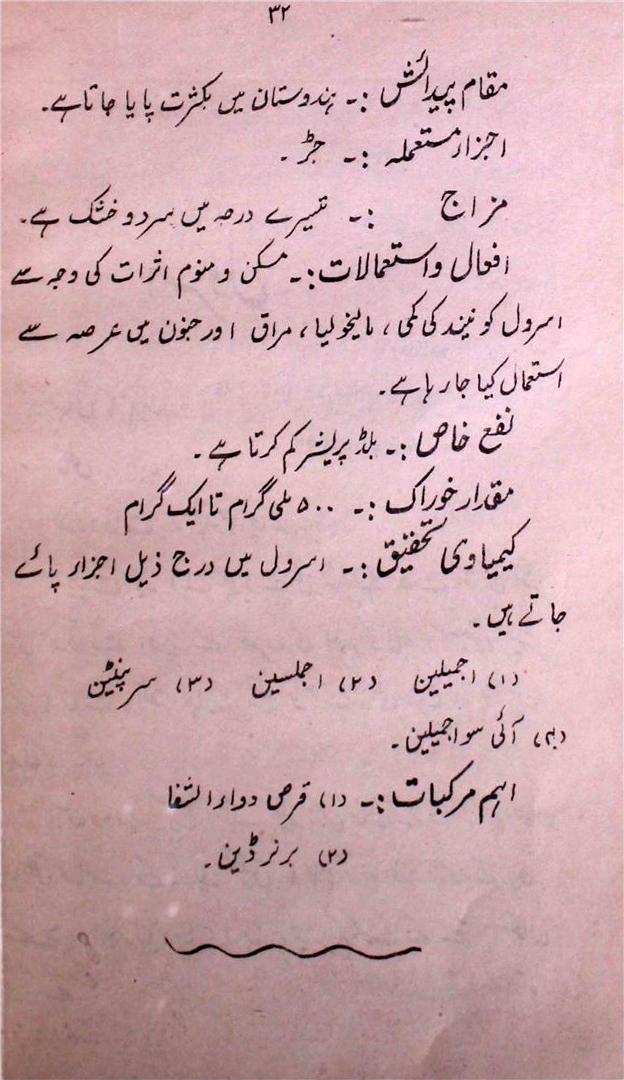 ۳۲
مقام پیدائش :۔ ہندوستان میں بکثرت پایا جاتا ہے۔
اجزاء مستعملہ :۔ جڑ۔
مزاج :۔ تیسرے درجہ میں سرد و خشک ہے۔
افعال و استعمالات :۔ مسکن و منوم اثرات کی وجہ سے
اسرول کو نیند کی کمی، مالیخولیا، مراق اور جنون میں عرصہ سے
استعمال کیا جا رہا ہے۔
نفع خاص :۔ بلڈ پریشر کم کرتا ہے۔
مقدار خوراک :۔ ۵۰۰ ملی گرام تا ایک گرام
کیمیاوی تحقیق :۔ اسرول میں درج ذیل اجزاء پائے
جاتے ہیں۔
(۱) اجمیلین (۲) اجملسین (۳) سرپنٹین
(۴) آئی سو اجمیلین۔
اہم مرکبات :۔ (۱) قرص دواء الشفا
(۲) برنرڈین۔